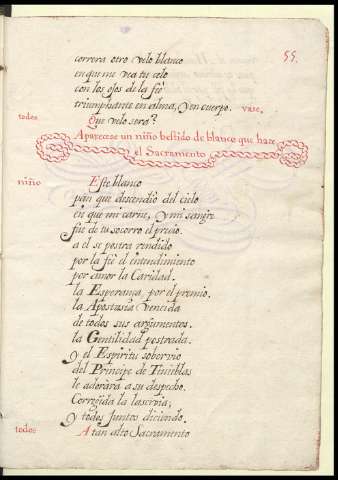 55.
correra otro velo blanco
en que me vea tu celo
con los ojos de la feè
triumphante en alma, y en cuerpo. vase.
todos Que velo sera?
Aparecese un niño bestido de blanco que haze
el Sacramento
niño Este blanco
pan que descendio del cielo
en que mi carne, y mi sangre
fue de tu socorro el precio.
a el se postra rendido
por la feè el entendimiento
por amor la Caridad.
la Esperanza por el premio.
la Apostasia vencida
de todos sus argumentos.
la Gentilidad postrada.
y el Espiritu sobervio
del Principe de Tinieblas
le adorara a su despecho.
Corregida la lascivia;
y todos juntos diciendo.
todos A tan alto Sacramento